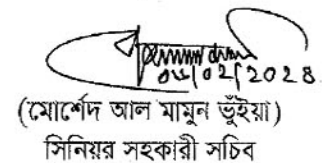 ০৬/০২/২০২৪
(মোর্শেদ আল মামুন ভুঁইয়া)
সিনিয়র সহকারী সচিব